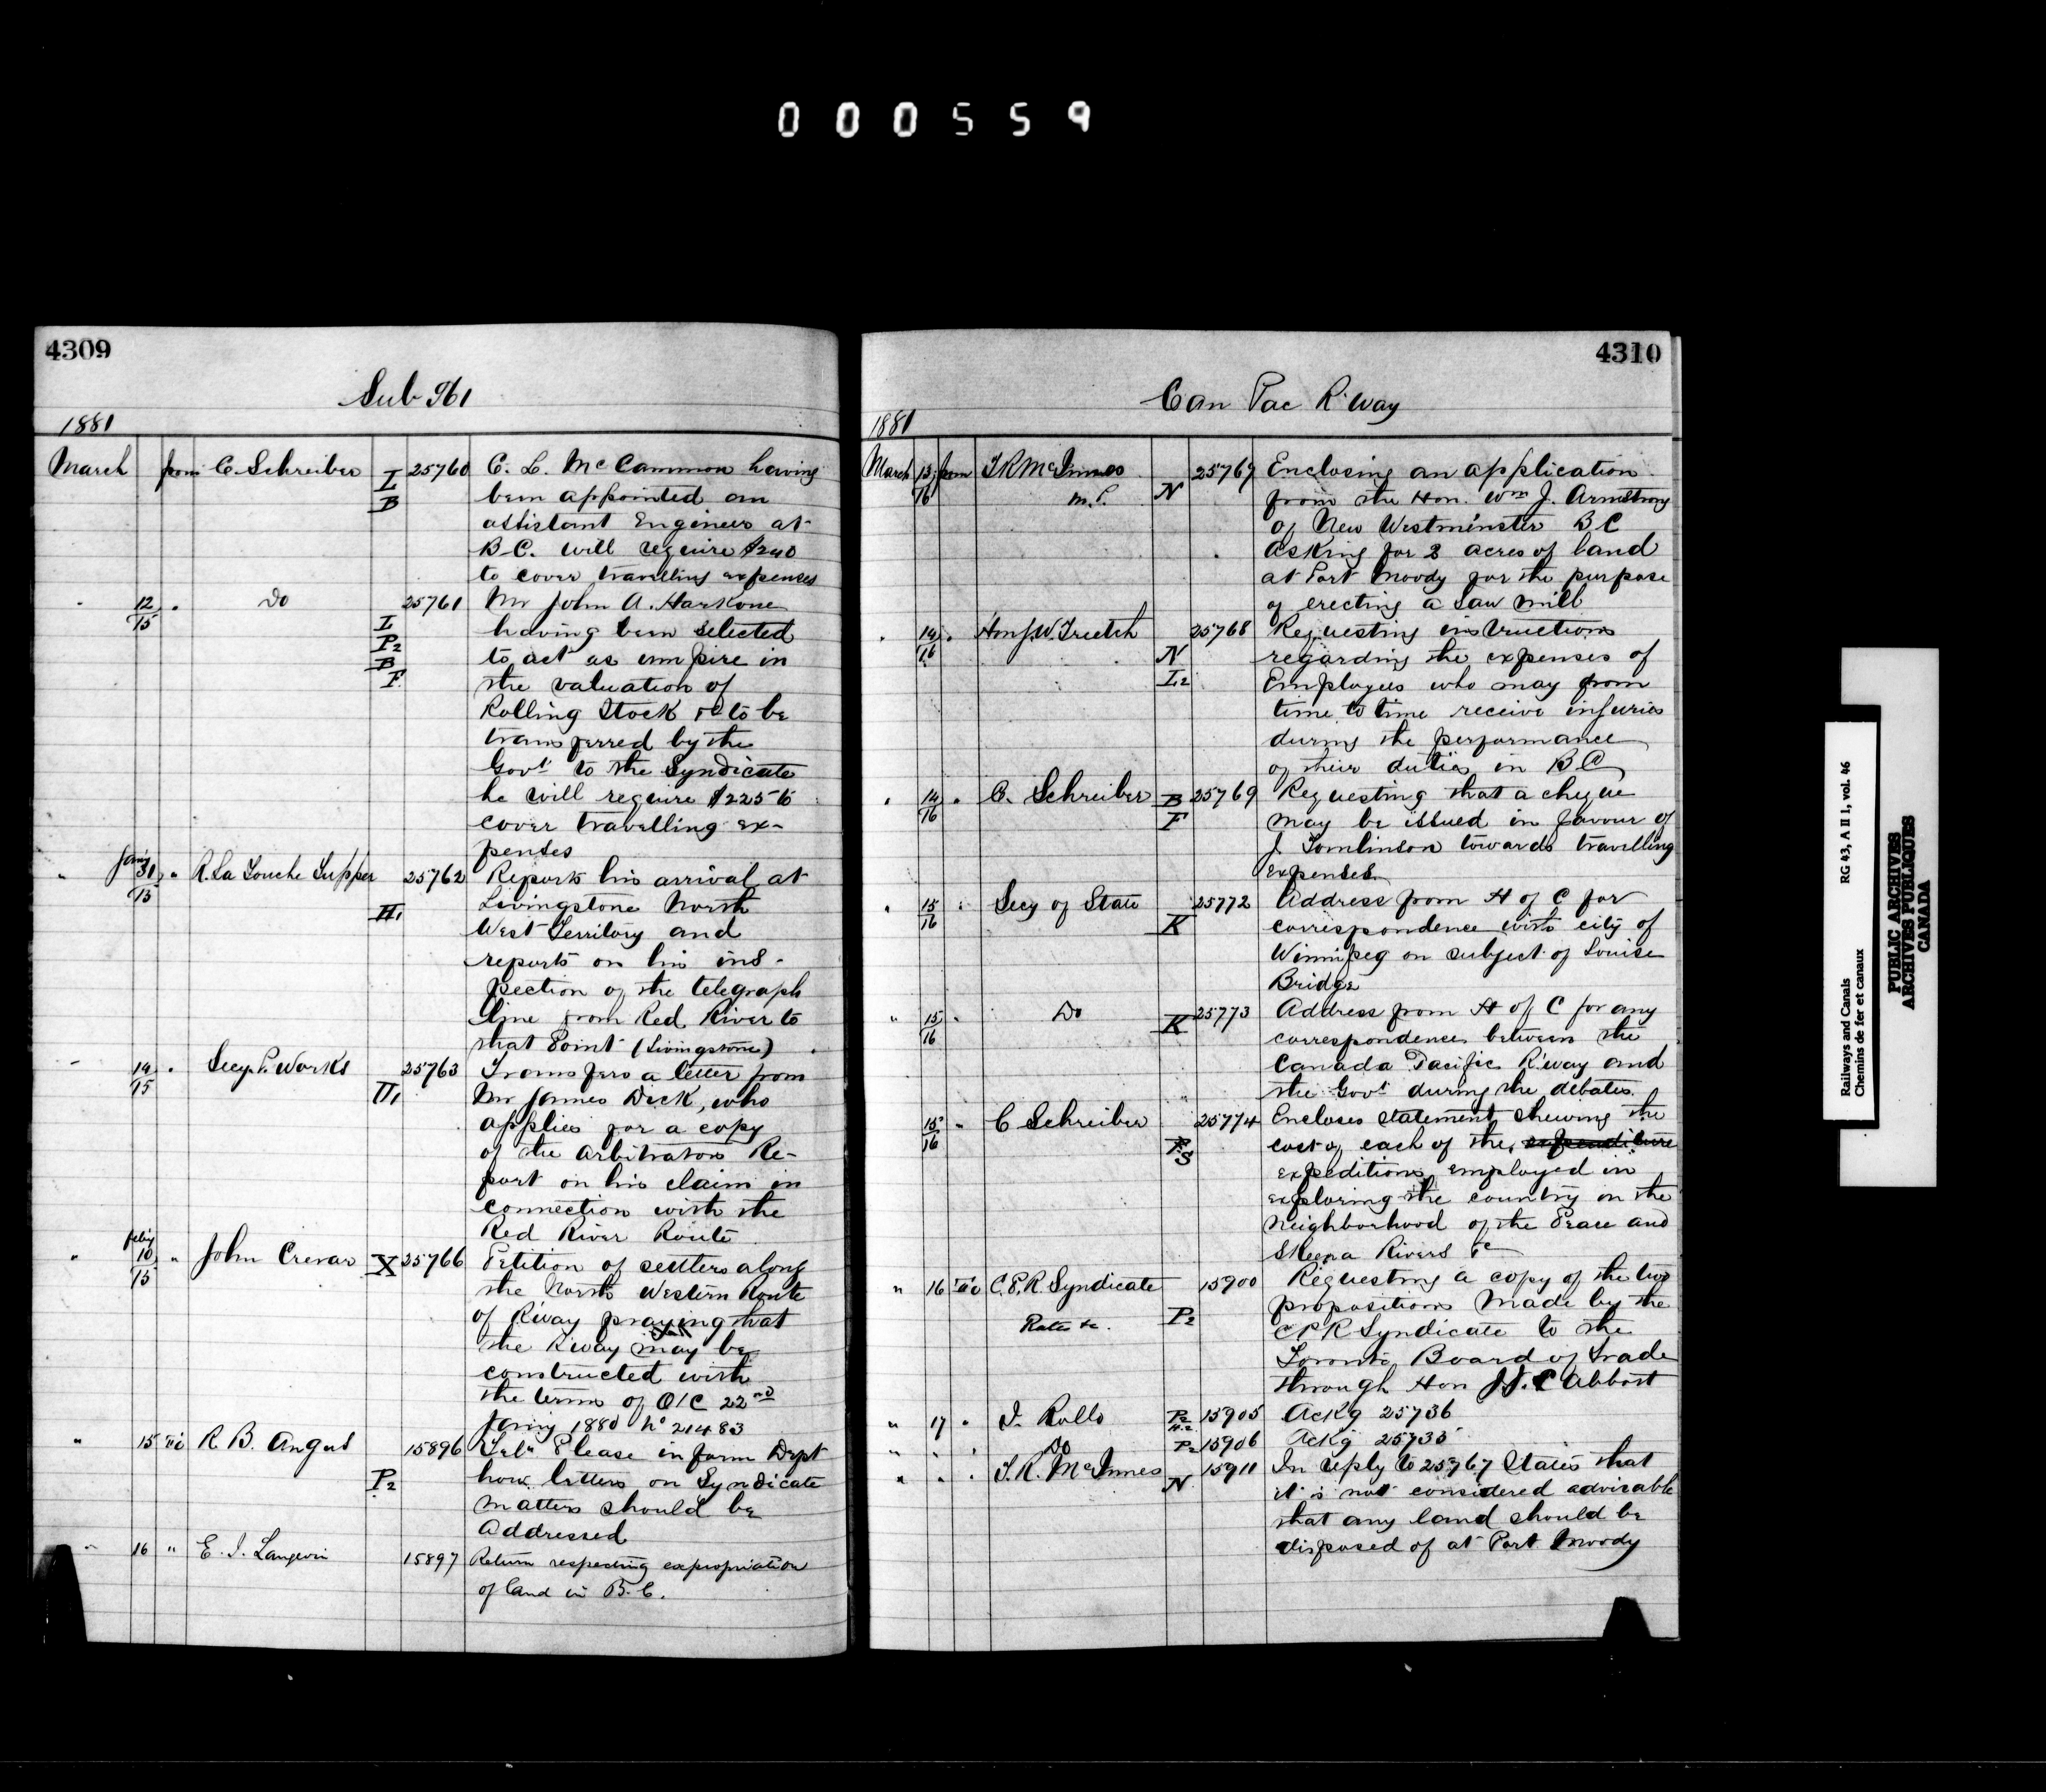 000559
4309
Sub 961
1881
March from C. Schreiber I B 25760 C. L. McCammon having
been appointed an
assistant Engineer at
B.C. will require $240
to cover travelling expenses
" 12/15 " Do I P2 B F 25761 Mr John A. Harkone
having been selected
to act as umpire in
the valuation of
Rolling Stock &c to be
transferred by the
Govt to the Syndicate
he will require $225 to
cover travelling ex-
penses
" Jany 31/15 " R. La Touche Tupper H1 25762 Reports his arrival at
Livingstone North
West Territory and
reports on his ins-
pection of the telegraph
line from Red River to
that Point (Livingstone)
" 14/15 " Secy P. Works H1 25763 Transfers a letter from
Mr James Dick, who
applies for a copy
of the arbitrators Re-
port on his claim in
connection with the
Red River Route
" Feby 10/15 " John Crerar X 25766 Petition of settlers along
the North Western Route
of R'way praying that
the R'way may be
constructed with
the terms of O/C 22nd
Jany 1880 No 21483
" 15 To R. B. Angus P2 15896 Teln Please inform Dept
how letters on Syndicate
matters should be
Addressed
" 16 " E. J. Langevin 15897 Return respecting expropriation
of land in B.C.
4310
Can Pac R'way
1881
March 13/16 from T R McInnes M.P. N 25767 Enclosing an application
from the Hon. Wm J. Armstrong
of New Westminster B C
asking for 2 acres of land
at Port Moody for the purpose
of erecting a Saw Mill
" 14/16 " Hon J.W. Trutch N I2 25768 Requesting instructions
regarding the expenses of
Employees who may from
time to time receive injuries
during the performance
of their duties in B C
" 14/16 " C. Schreiber B F 25769 Requesting that a cheque
may be issued in favour of
J. Tomlinson towards travelling
expenses
" 15/16 " Secy of State K 25772 Address from H of C for
correspondence with city of
Winnipeg on subject of Louise
Bridge
" 15/16 " Do K 25773 Address from H of C for any
correspondence between the
Canada Pacific R'way and
the Govt during the debates.
15/16 " C Schreiber S 25774 Encloses statement shewing the
cost of each of the expenditure
expeditions employed in
exploring the country in the
Neighborhood of the Peace and
Skeena Rivers &c
" 16 To C.P.R. Syndicate Rates &c. P2 15900 Requesting a copy of the two
propositions made by the
C P R Syndicate to the
Toronto Board of Trade
through Hon J.J.C Abbott
" 17 " J. Rollo P2 15905 Ackg 25736
" " " Do P2 15906 Ackg 25735
" " " T. R. McInnes N 15911 In reply to 25767 States that
it is not considered advisable
that any land should be
disposed of at Port Moody
Railways and Canals RG 43, A II 1, vol. 46
Chemins de fer et canaux
PUBLIC ARCHIVES
ARCHIVES PUBLIQUES
CANADA